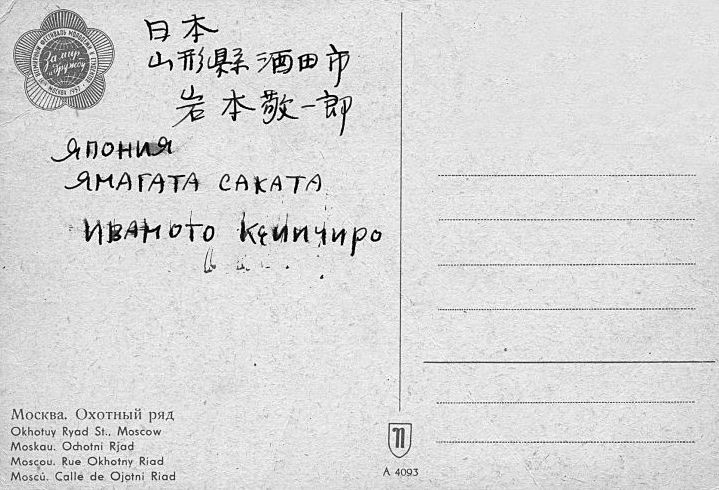 VI ВСЕМИРНЫЙ ФЕСТИВАЛЬ МОЛОДЕЖИ И СТУДЕНТОВ
За мир и дружбу
МОСКВА 1957
日本
山形縣酒田市
岩本敬一郎
ЯПОНИЯ
ЯМАГАТА САКАТА
ИВАМОТО Кэиичиро
Москва. Охотный ряд
Okhotuy Ryad St., Moscow
Moskau. Ochotni Rjad
Moscou. Rue Okhotny Riad
Moscú. Calle de Ojotni Riad
А 4093